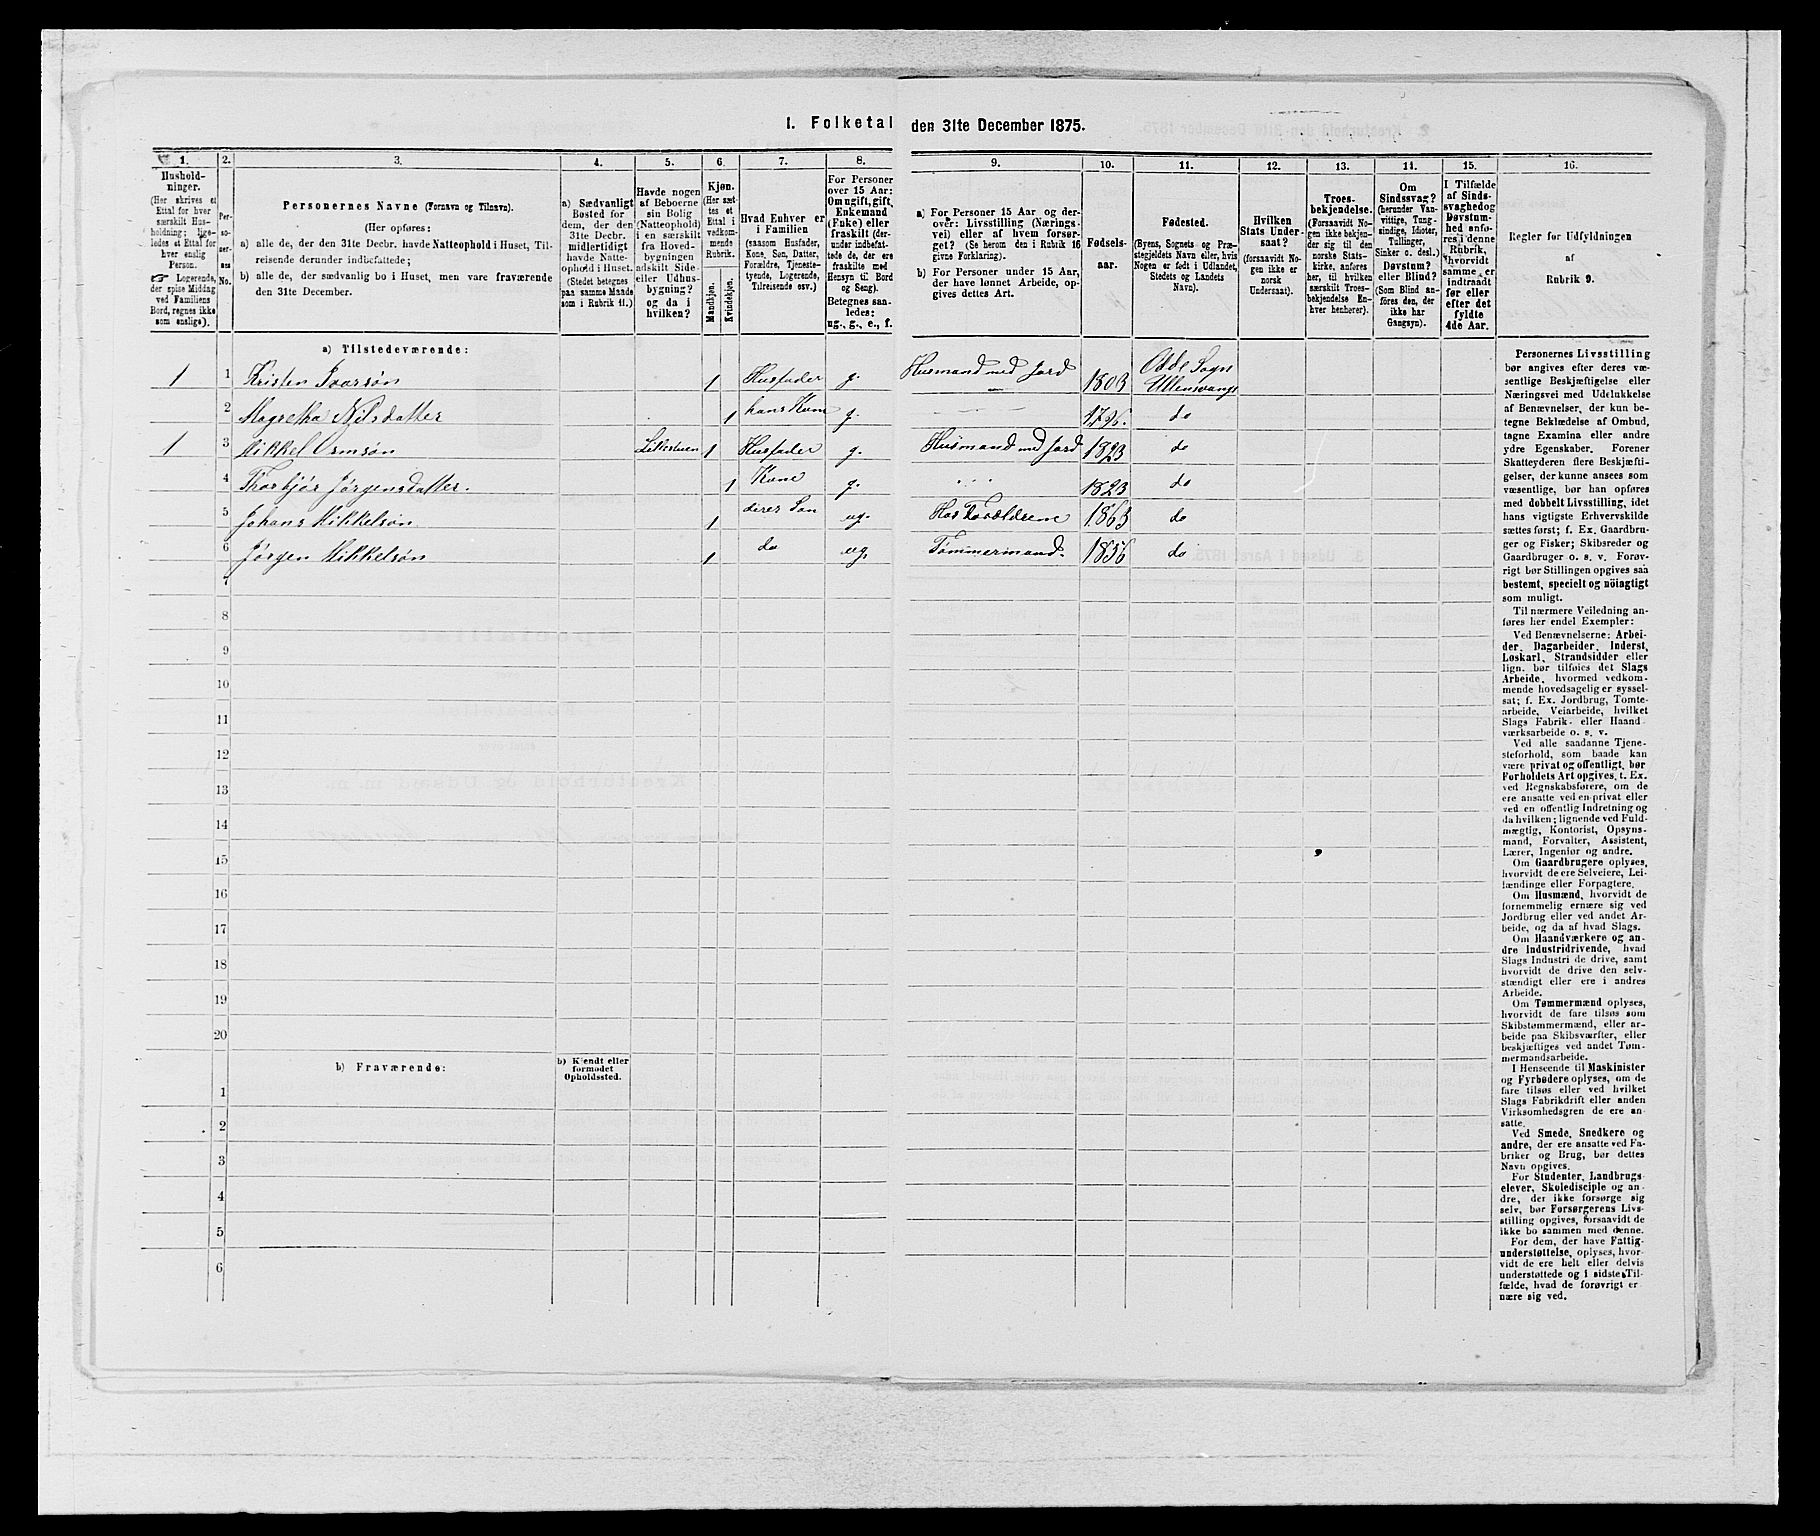 I. Folketal den 31te December 1875.
1. 2. 3. 4. 5. 6. 7. 8. 9. 10. 11. 12. 13. 14. 15. 16.
Hushold-
ninger.
(Her skrives et
Ettal for hver
særskilt Hus-
holdning; lige-
ledes et Ettal for
hver enslig
Person.
☞ Logerende,
der spise Middag
ved Familiens
Bord, regnes ikke
som enslige).
Per-
so-
ner-
nes
No.
Personernes Navne (Fornavn og Tilnavn).
(Her opføres:
a) alle de, der den 31te Decbr. havde Natteophold i Huset, Til-
reisende derunder indbefattede;
b) alle de, der sædvanlig bo i Huset, men vare fraværende
den 31te December.
a) Sædvanligt
Bosted for
dem, der den
31te Decbr.
midlertidigt
havde Natte-
ophold i Huset.
(Stedet betegnes
paa samme Maade
som i Rubrik 11.)
Havde nogen
af Beboerne
sin Bolig
(Natteophold)
i en særskilt
fra Hoved-
bygningen
adskilt Side-
eller Udhus-
bygning?
og da i
hvilken?
Kjøn.
(Her sæt-
tes et
Ettal i
vedkom-
mende
Rubrik.
Mandkjøn.
Kvindekjøn.
Hvad Enhver er
i Familien
(saasom Husfader,
Kone, Søn, Datter,
Forældre, Tjeneste-
tyende, Logerende,
Tilreisende osv.)
For Personer
over 15 Aar:
Om ugift, gift,
Enkemand
(Enke) eller
fraskilt (der-
under indbefat-
tede de, der ere
fraskilte med
Hensyn til Bord
og Seng).
Betegnes saa-
ledes:
ug., g., e., f.
a) For Personer 15 Aar og der-
over: Livsstilling (Nærings-
vei) eller af hvem forsør-
get? (Se herom den i Rubrik 16
givne Forklaring).
b) For Personer under 15 Aar,
der have lønnet Arbeide, op-
gives dettes Art.
Fødsels-
aar.
Fødested.
(Byens, Sognets og Præ-
stegjeldets Navn eller, hvis
Nogen er født i Udlandet,
Stedets og Landets
Navn).
Hvilken
Stats Under-
saat?
(forsaavidt No-
gen ikke er
norsk
Undersaat).
Troes-
bekjendelse.
(Forsaavidt No-
gen ikke bekjen-
der sig til den
norske Stats-
kirke, anføres
her, til hvilken
særskilt Troes-
bekjendelse En-
hver henhører).
Om
Sindssvag?
(herunder Van-
vittige, Tung-
sindige, Idioter,
Tullinger,
Sinker o. desl.)
Døvstum?
eller Blind?
(Som Blind an-
føres den, der
ikke har
Gangsyn).
I Tilfælde
af Sinds-
svaghed og
Døvstum-
hed anfø-
res i denne
Rubrik,
hvorvidt
samme er
indtraadt
før eller
efter det
fyldte
4de Aar.
Regler for Udfyldningen
af
Rubrik 9.
a) Tilstedeværende:
1 1 Kristen Ivarsøn 1 Husfader g. Husmand med Jord 1803 Odde Sogn
Ullensvangs
2 Magretha Nilsdatter 1 hans Kone g. 1796. do
1 3 Mikkel Ormsøn 1 Husfader g. Husmand med Jord 1823 do
4 Thorbjør Jørgensdatter. 1 Kone g. 1823 do
5 Johans Mikkelsøn 1 deres Søn ug. Hos Forældrene 1863 do
6 Jørgen Mikkelsøn 1 do ug. Tømmermand. 1856 do
7
8
9
10
11
12
13
14
15
16
17
18
19
20
b) Fraværende:
b) Kjendt eller
formodet
Opholdssted.
1
2
3
4
5
6
Personernes Livsstilling
bør angives efter deres væ-
sentlige Beskjæftigelse eller
Næringsvei med Udelukkelse
af Benævnelser, der kun be-
tegne Beklædelse af Ombud,
tagne Examina eller andre
ydre Egenskaber. Forener
Skatteyderen flere Beskjæfti-
gelser, der kunne ansees som
væsentlige, bør han opføres
med dobbelt Livsstilling, idet
hans vigtigste Erhvervskilde
sættes først; f. Ex. Gaardbru-
ger og Fisker; Skibsreder og
Gaardbruger o. s. v. Forøv-
rigt bør Stillingen opgives saa
bestemt, specielt og nöiagtigt
som muligt.
Til nærmere Veiledning an-
føres her endel Exempler:
Ved Benævnelserne: Arbei-
der, Dagarbeider, Inderst,
Løskarl, Strandsidder eller
lign. bør tilføies det Slags
Arbeide, hvormed vedkom-
mende hovedsagelig er syssel-
sat; f. Ex. Jordbrug, Tomte-
arbeide, Veiarbeide, hvilket
Slags Fabrik- eller Haand-
værksarbeide o. s. v.
Ved alle saadanne Tjene-
steforhold, som baade kan
være privat og offentligt, bør
Forholdets Art opgives, t. Ex.
ved Regnskabsførere, om de
ere ansatte ved en privat eller
ved en offentlig Indretning og
da hvilken; lignende ved Fuld-
mægtig, Kontorist, Opsyns-
mand, Forvalter, Assistent,
Lærer, Ingeniør og andre.
Om Gaardbrugere oplyses,
hvorvidt de ere Selveiere, Lei-
lændinge eller Forpagtere.
Om Husmænd, hvorvidt de
fornemmelig ernære sig ved
Jordbrug eller ved andet Ar-
beide, og da af hvad Slags.
Om Haandværkere og an-
dre Industridrivende, hvad
Slags Industri de drive, samt
hvorvidt de drive den selv-
stændigt eller ere i andres
Arbeide.
Om Tømmermænd oplyses,
hvorvidt de fare tilsøs som
Skibstømmermænd, eller ar-
beide paa Skibsværfter, eller
beskjæftiges ved andet Tøm-
mermandsarbeide.
I Henseende til Maskinister
og Fyrbødere oplyses, om de
fare tilsøs eller ved hvilket
Slags Fabrikdrift eller anden
Virksomhedsgren de ere an-
satte.
Ved Smede, Snedkere og
andre, der ere ansatte ved Fa-
briker og Brug, bør dettes
Navn opgives.
For Studenter, Landbrugs-
elever, Skoledisciple og an-
dre, der ikke forsørge sig
selv, bør Forsørgerens Livs-
stilling opgives, forsaavidt de
ikke bo sammen med denne.
For dem, der have Fattig-
understøttelse, oplyses, hvor-
vidt de ere helt eller delvis
understøttede og i sidste Til-
fælde, hvad de forøvrigt er-
nære sig ved.